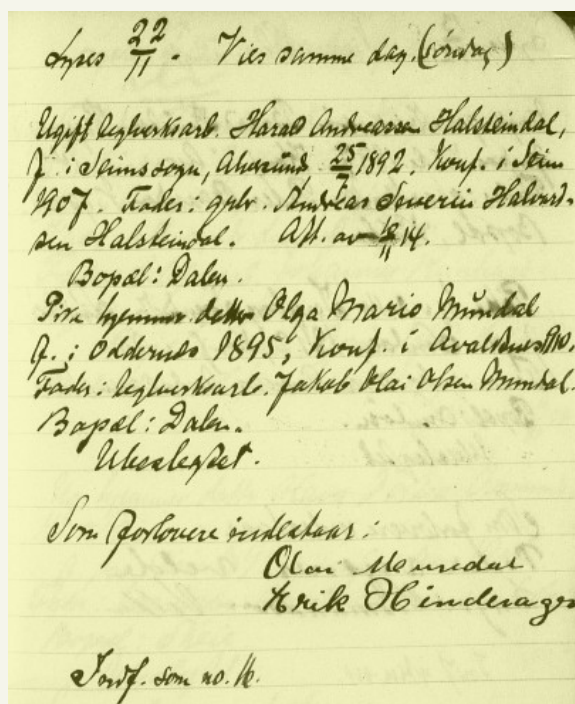 Lyses 22/11. Vies samme dag. (søndag)
Ugift teglverksarb. Harald Andreassen Halsteindal,
f. i Seimsogn, Alversund 25/ 1892. Konf. i Seim
1907. Fader: grbr. Andreas Severin Halvard-
sen Halsteindal. Att. av 14.
Bopæl: Dalen.
Pike datter Olga Marie Mündal
f. i Oddernes 1895, Konf. i Avaldsnes 1910.
Fader: teglverksarb. Jakob Olai Olsen Mundal.
Bopæl: Dalen.
Ubeslegtet.
Som forlovere indestaar:
Olai Mundal
Erik Hinderager
Indf. som no. 16.